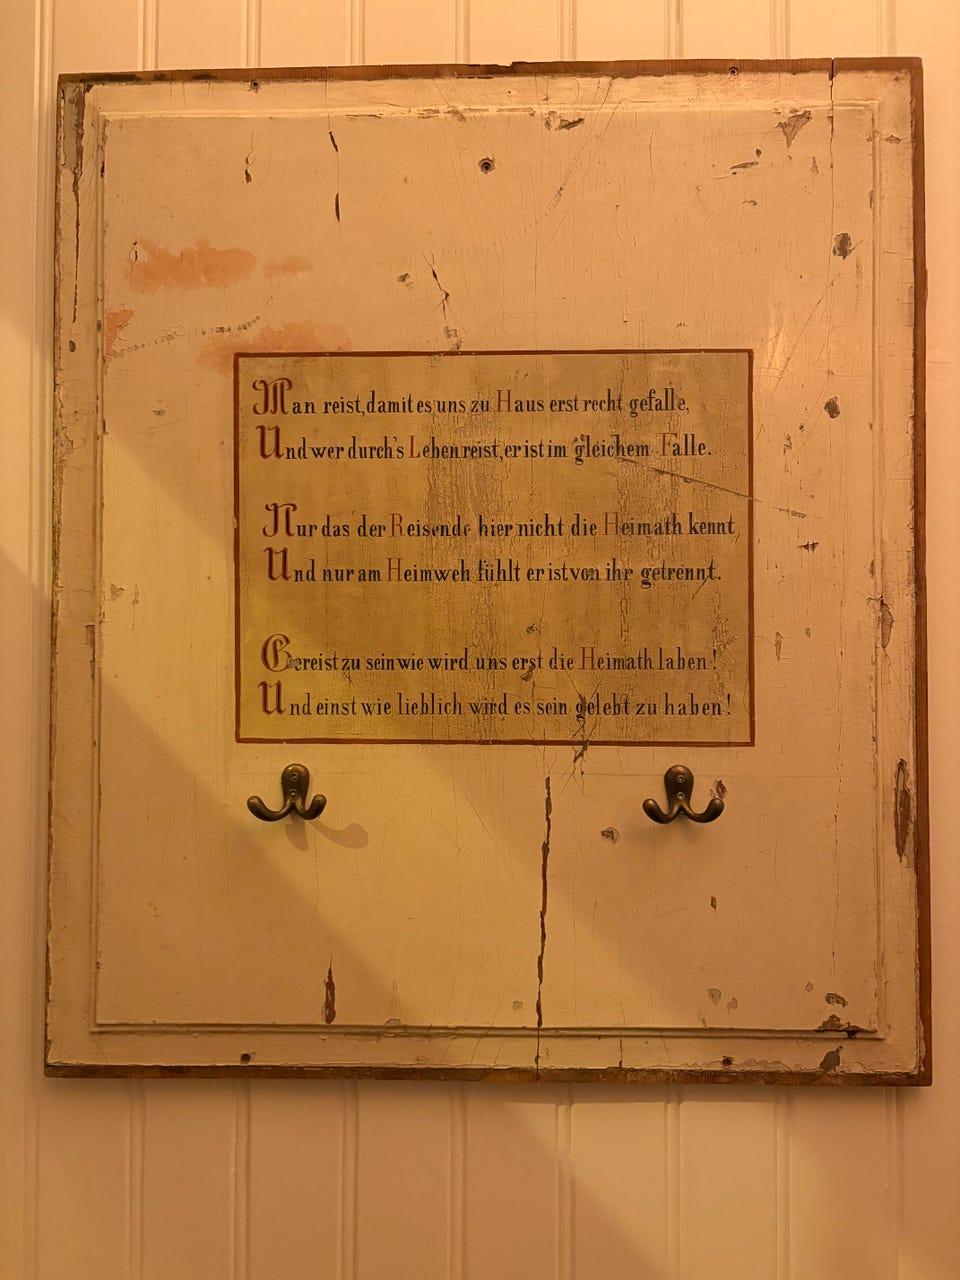 Man reist, damit es uns zu Haus erst recht gefalle,
Und wer durch's Leben reist, er ist im gleichem Falle.
Nur das der Reisende hier nicht die Heimath kennt,
Und nur am Heimweh fühlt er ist von ihr getrennt.
Gereist zu sein wie wird uns erst die Heimath laben!
Und einst wie lieblich wird es sein gelebt zu haben!